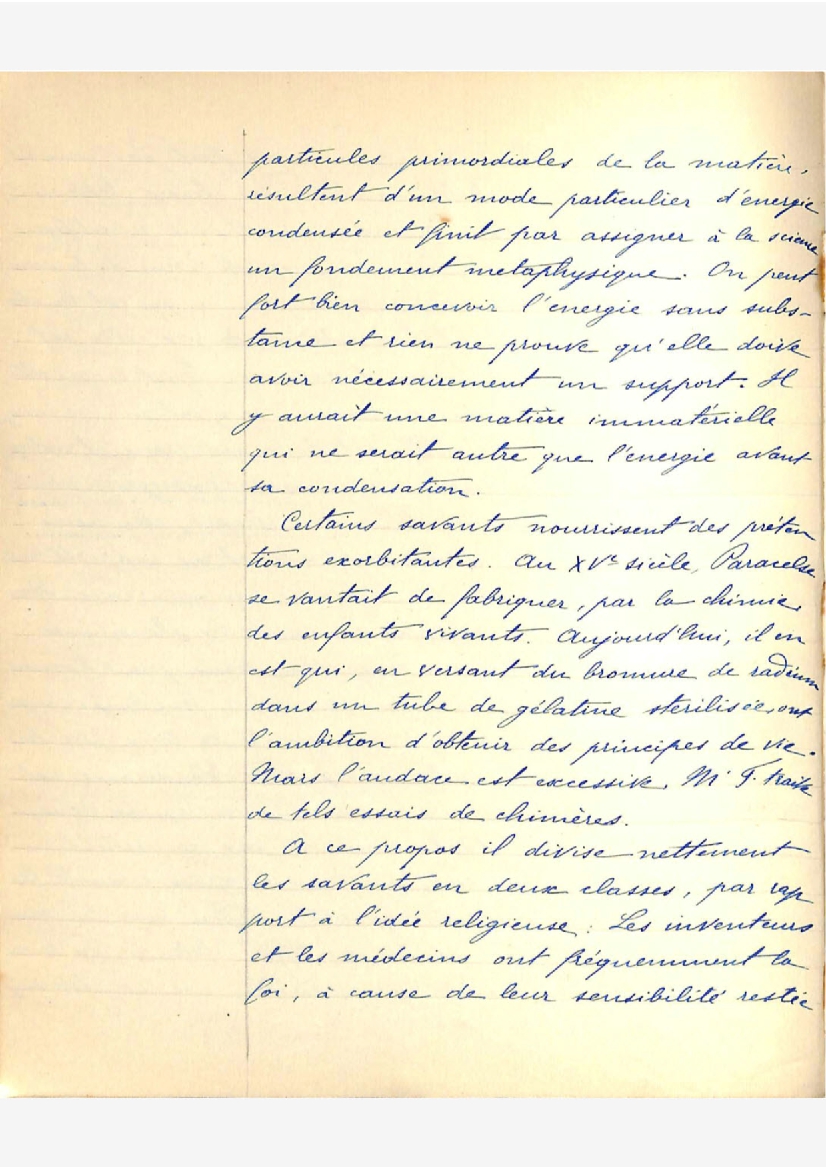 particules primordiales de la matière,
résultent d'un mode particulier d'énergie
condensée et finit par assigner à la science
un fondement metaphysique. On peut
fort bien concevoir l'énergie sans subs-
tance et rien ne prouve qu'elle doive
avoir nécessairement un support. Il
y aurait une matière immatérielle
qui ne serait autre que l'énergie avant
sa condensation.
Certains savants nourrissent des préten
tions exorbitantes. Au XVe siècle, Paracelse
se vantait de fabriquer, par la chimie,
des enfants vivants. Aujourd'hui, il en
est qui, en versant du bromure de radium
dans un tube de gélatine stérilisée, ont
l'ambition d'obtenir des principes de vie.
Mais l'audace est excessive. Mr F. traite
de tels essais de chimères.
A ce propos il divise nettement
les savants en deux classes, par rap
port à l'idée religieuse : Les inventeurs
et les médecins ont fréquemment la
foi, à cause de leur sensibilité restée